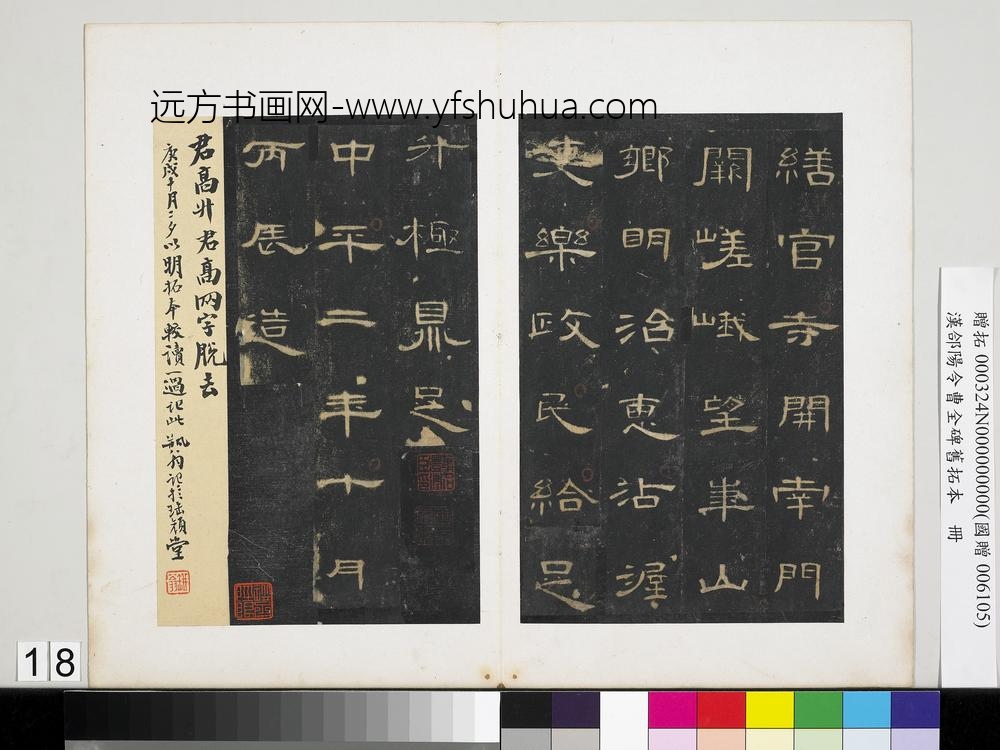 远方书画网-www.yfshuhua.com
繕官寺開南門
闕嵯峨望華山
鄉明治惠沾渥
吏樂政民給足
升極鼎足
中平二年十月
丙辰造
君高升君高兩字脫去
庚戌十月二夕以明拓本較讀一過記此
贈拓 000324N000000000(國贈 006105)
漢郃陽令曹全碑舊拓本 冊
18